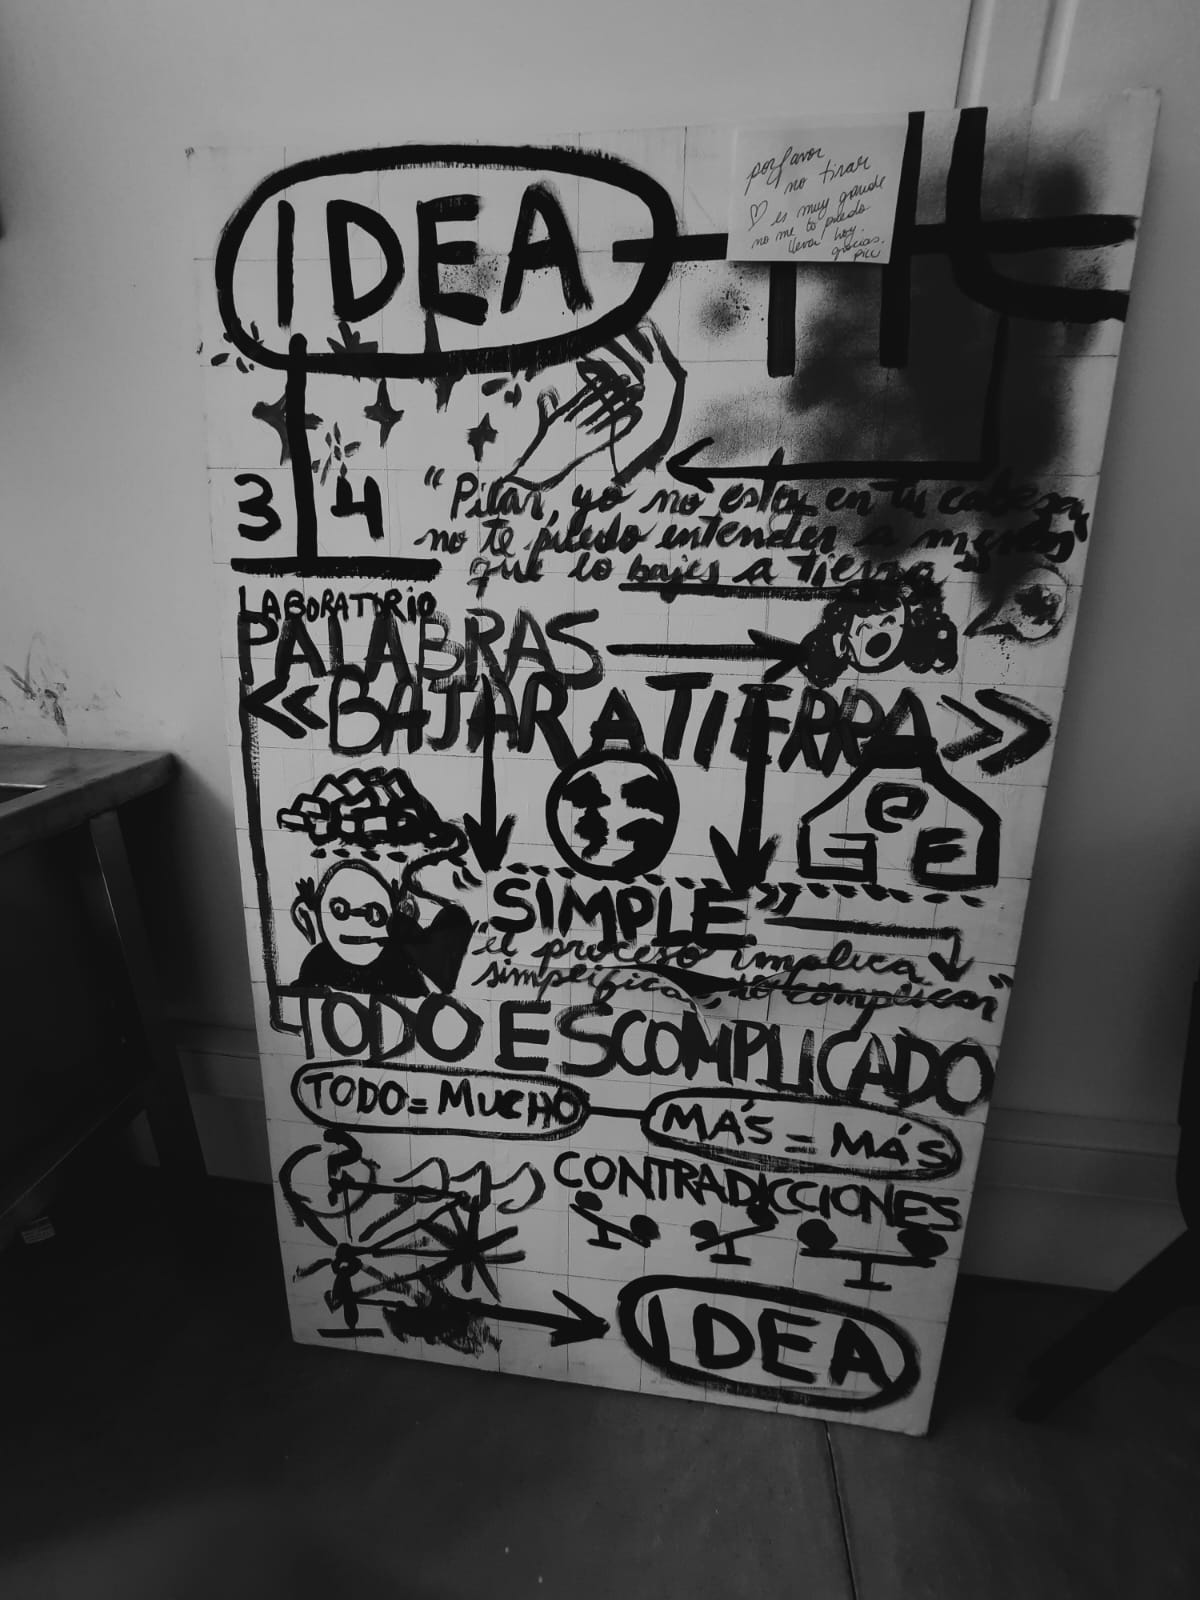 IDEA
por favor
no tirar
♡ es muy grande
no me lo puedo
llevar hoy.
gracias.
pili
3 4
"Pilar, yo no estoy en tu cabeza,
no te puedo entender a menos
que lo bajes a tierra"
LABORATORIO
PALABRAS
«BAJAR A TIERRA»
"SIMPLE"
"el proceso implica
simplificar, no complicar"
TODO ES COMPLICADO
TODO = MUCHO
MÁS = MÁS
CONTRADICCIONES
IDEA